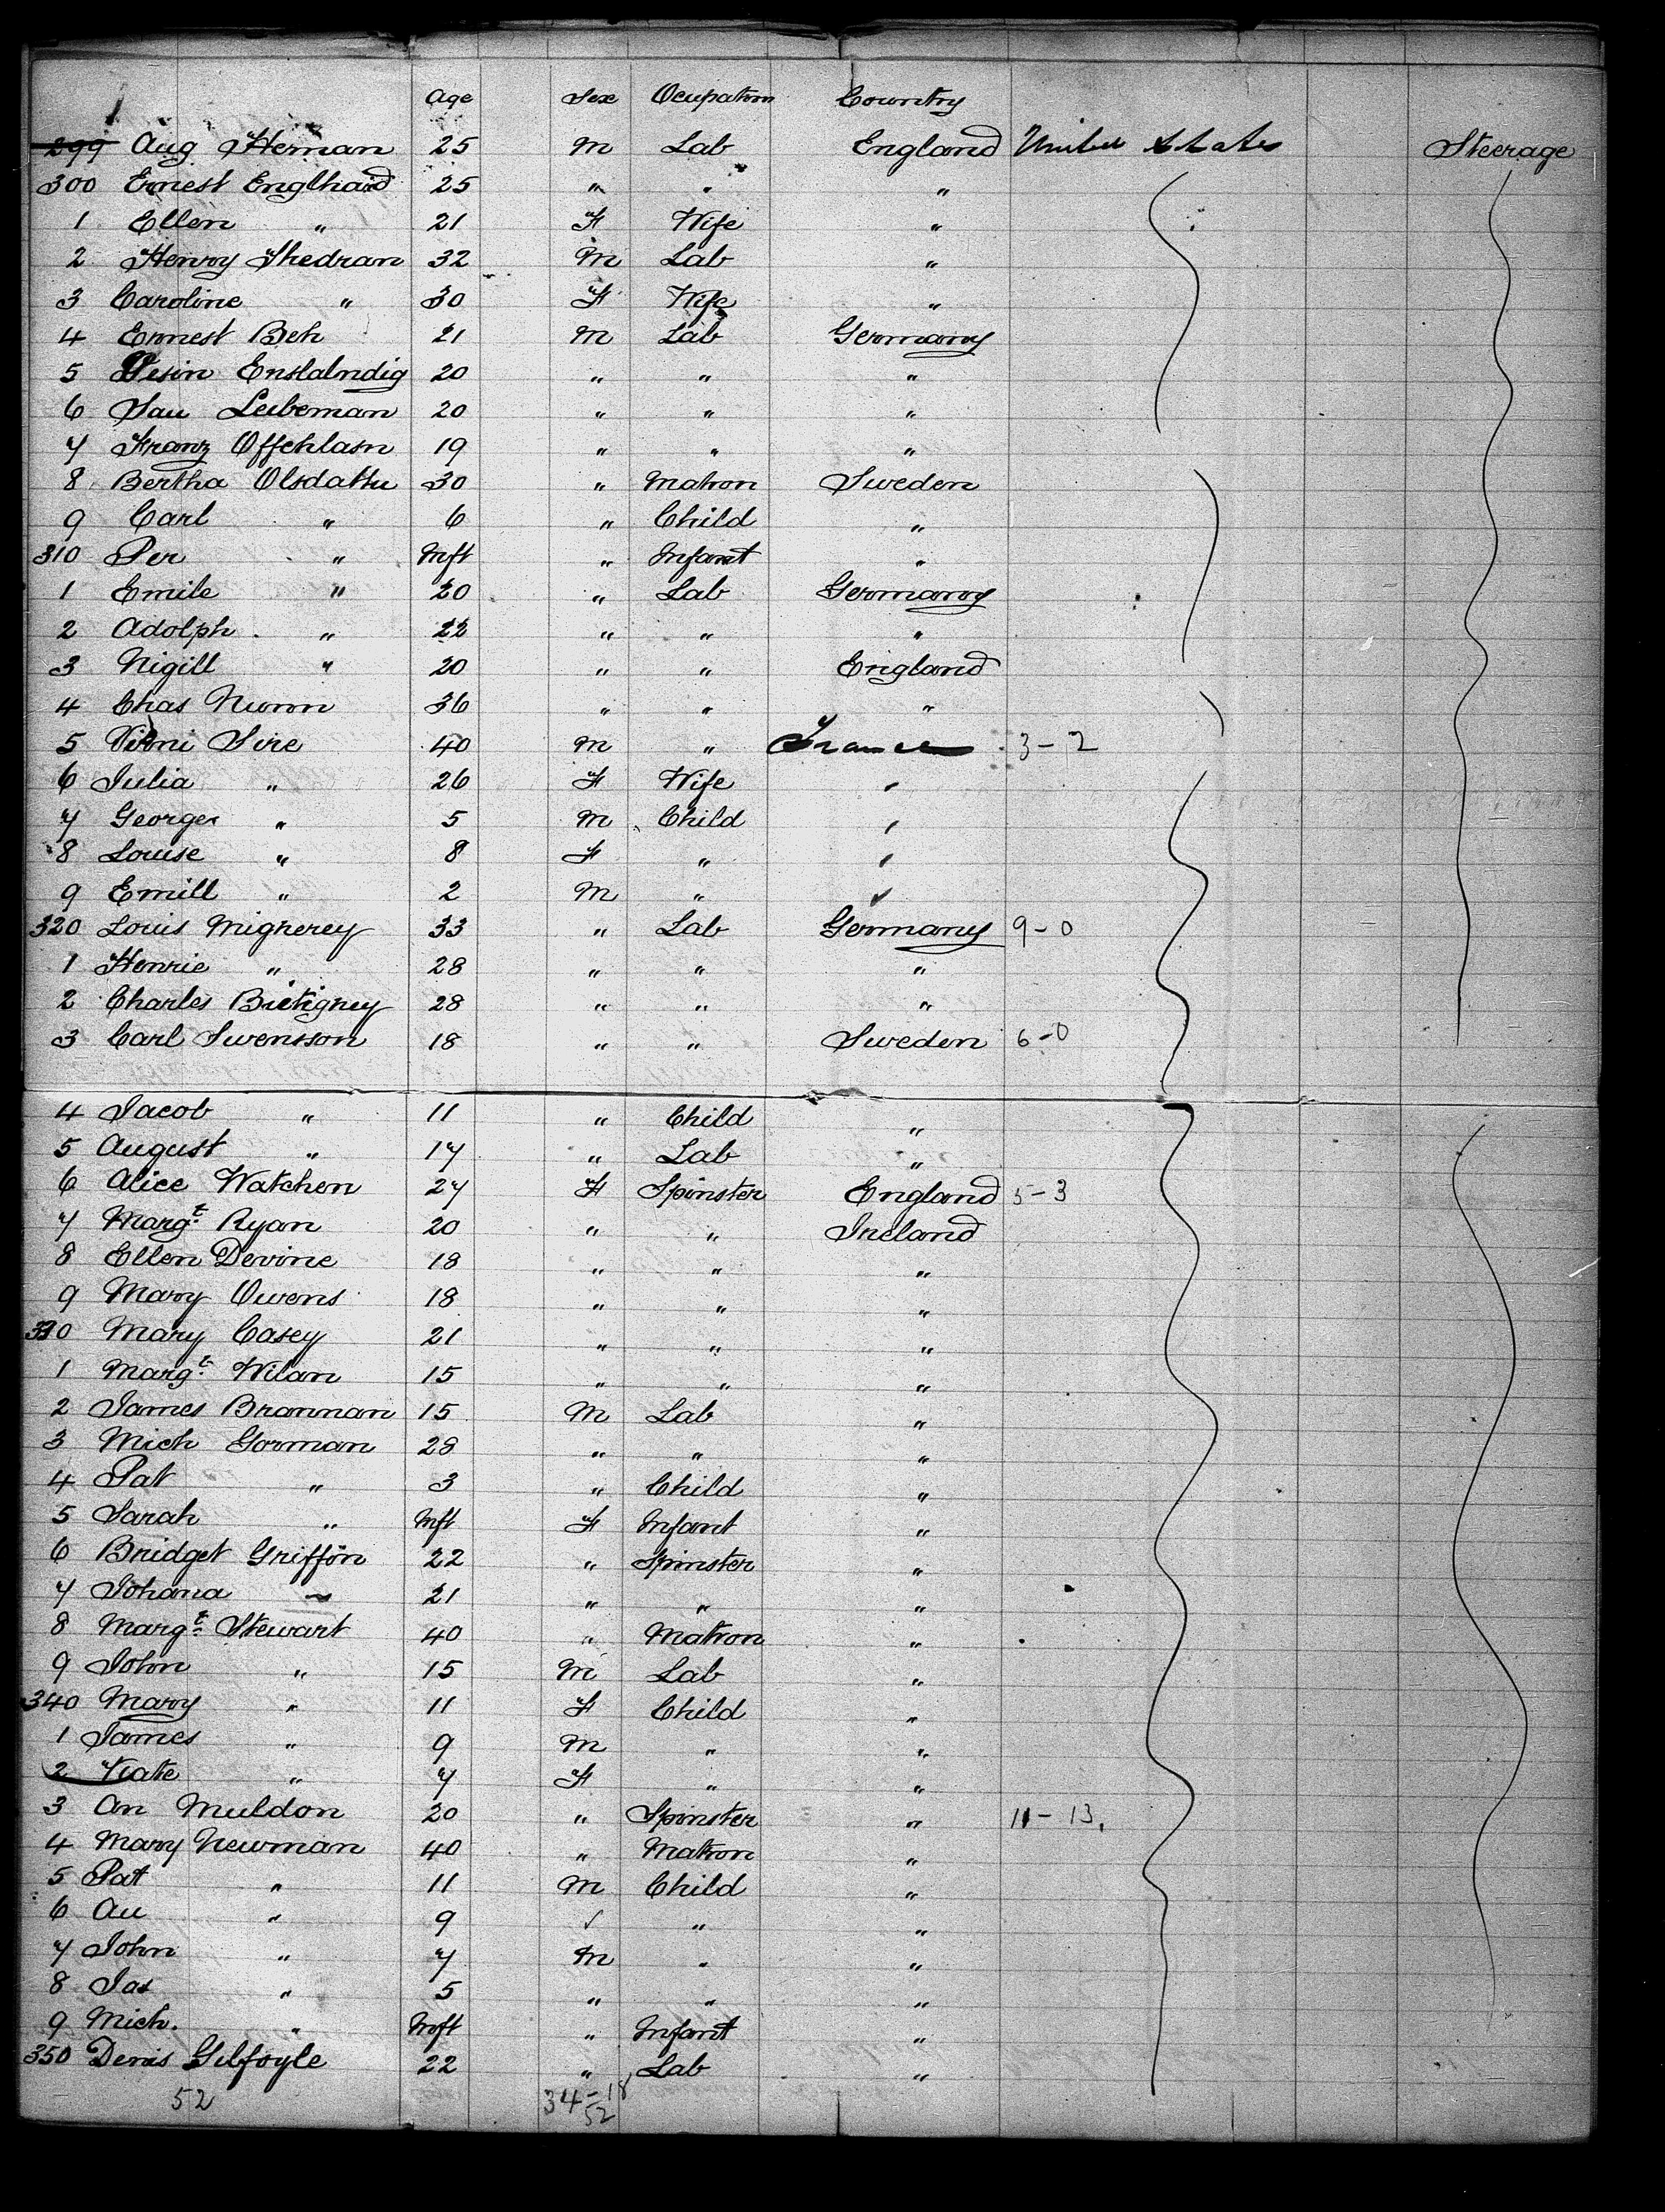 Age Sex Ocupation Country
299 Aug Heman 25 M Lab England United States Steerage
300 Ernest Englhard 25 " " "
1 Ellen " 21 F Wife "
2 Henry Shedran 32 M Lab "
3 Caroline " 30 F Wife "
4 Ernest Beh 21 M Lab Germany
5 Enslalndig 20 " " "
6 Sau Leubeman 20 " " "
7 Franz Offchlasn 19 " " "
8 Bertha Olsdattu 30 " Matron Sweden
9 Carl " 6 " Child "
310 Per " Inft " Infant "
1 Emile " 20 " Lab Germany
2 Adolph " 22 " " "
3 Nigill " 20 " " England
4 Chas Nunn 36 " " "
5 Sire 40 M " France 3-2
6 Julia " 26 F Wife "
7 Georges " 5 M Child "
8 Louise " 8 F " "
9 Emill " 2 M " "
320 Louis Mignerey 33 " Lab Germany 9-0
1 Henrie " 28 " " "
2 Charles Bietigney 28 " " "
3 Carl Swensson 18 " " Sweden 6-0
4 Jacob " 11 " Child "
5 August " 17 " Lab "
6 Alice Watchen 27 F Spinster England 5-3
7 Margt Ryan 20 " " Ireland
8 Ellen Devine 18 " " "
9 Mary Owens 18 " " "
330 Mary Casey 21 " " "
1 Margt Wilan 15 " " "
2 James Brannan 15 M Lab "
3 Mich Gorman 28 " " "
4 Pat " 3 " Child "
5 Sarah " Inft F Infant "
6 Bridget Griffin 22 " Spinster "
7 Johana " 21 " " "
8 Margt Stewart 40 " Matron "
9 John " 15 M Lab "
340 Mary " 11 F Child "
1 James " 9 M " "
2 Kate " 7 F " "
3 An Muldon 20 " Spinster " 11-13.
4 Mary Newman 40 " Matron "
5 Pat " 11 M Child "
6 Au " 9 ✓ " "
7 John " 7 M " "
8 Jas " 5 " " "
9 Mich. " Inft " Infant "
350 Denis Gilfoyle 22 " Lab "
52 34-18
52